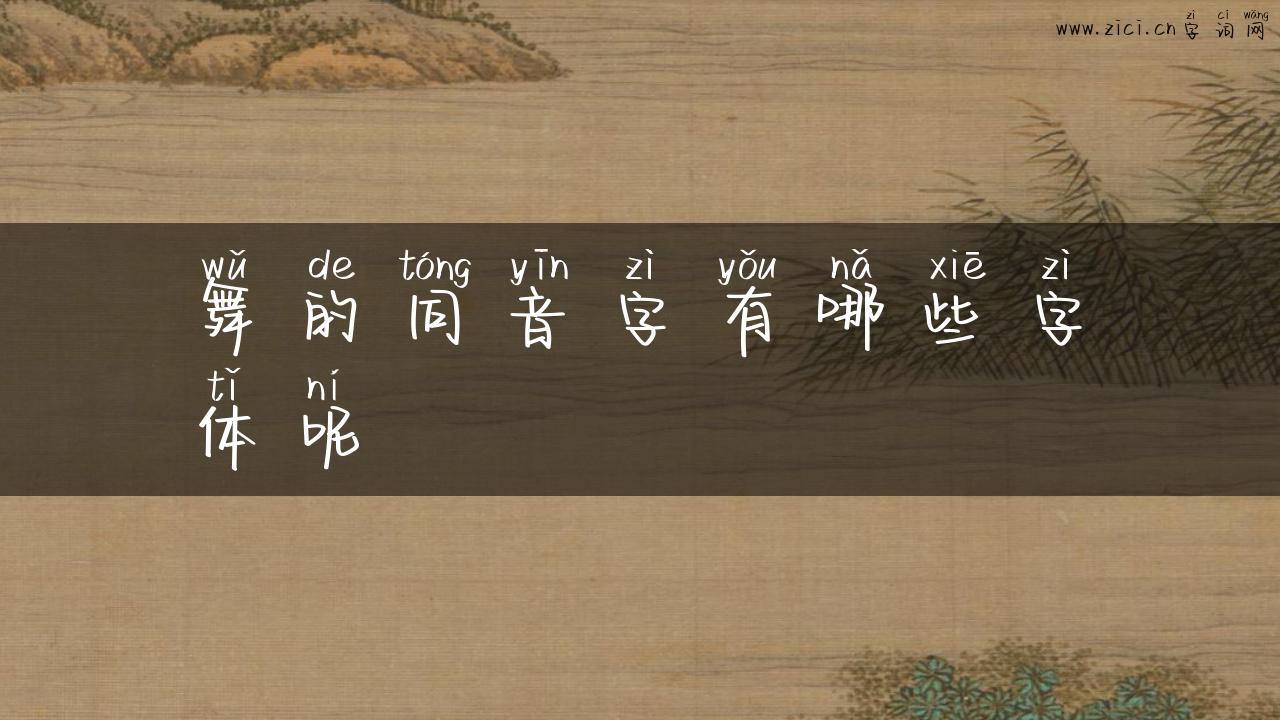 zì cí wǎng
www.zici.cn 字词网
wǔ de tóng yīn zì yǒu nǎ xiē zì
舞的同音字有哪些字
tǐ ní
体呢